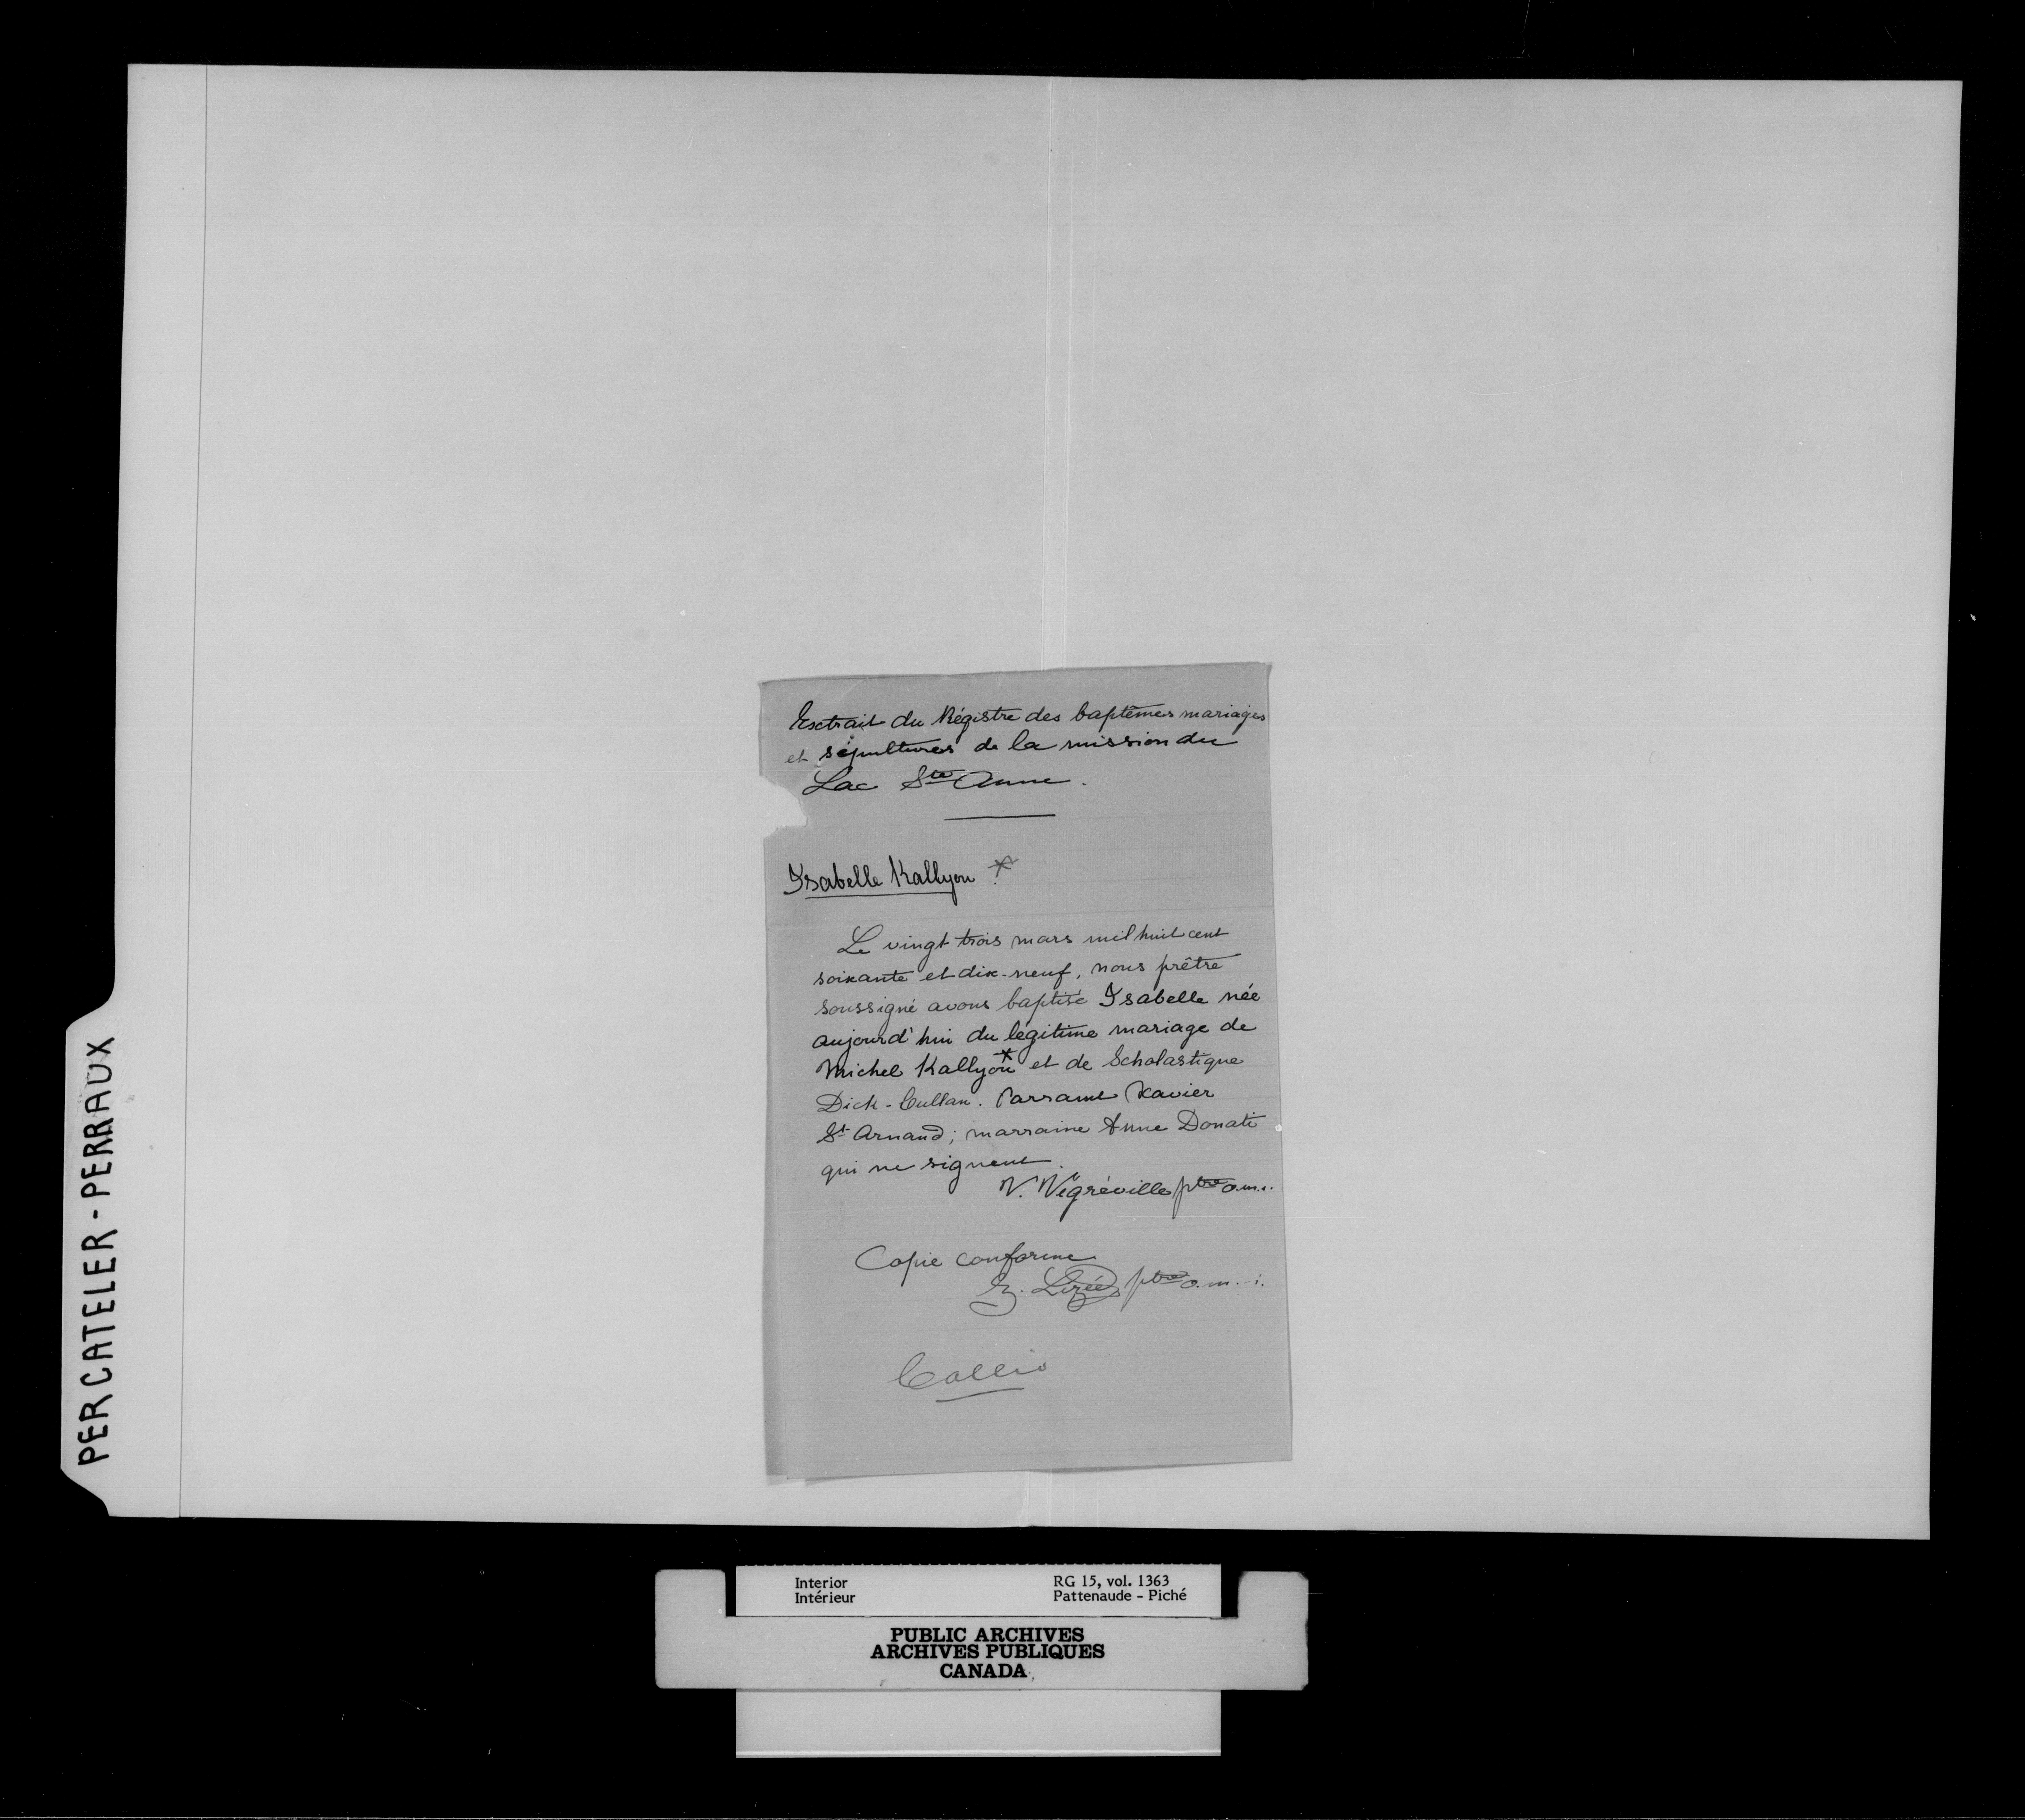 Extrait du Régistre des baptêmes mariages
et sépultures de la mission du
Lac Ste Anne.
Isabelle Kallyou *
Le vingt trois mars mil huit cent
soixante et dix-neuf, nous prêtre
soussigné avons baptisé Isabelle née
aujourd'hui du légitime mariage de
Michel Kallyou * et de Scholastique
Dick-Cullan. Parrain Xavier
St Arnaud; marraine Anne Donati
qui ne signent.
V. Végréville ptre o.m.i.
Copie conforme
Z. Lizée ptre o.m.i.
Callio
PERCATELER - PERRAUX
Interior
Intérieur
RG 15, vol. 1363
Pattenaude - Piché
PUBLIC ARCHIVES
ARCHIVES PUBLIQUES
CANADA